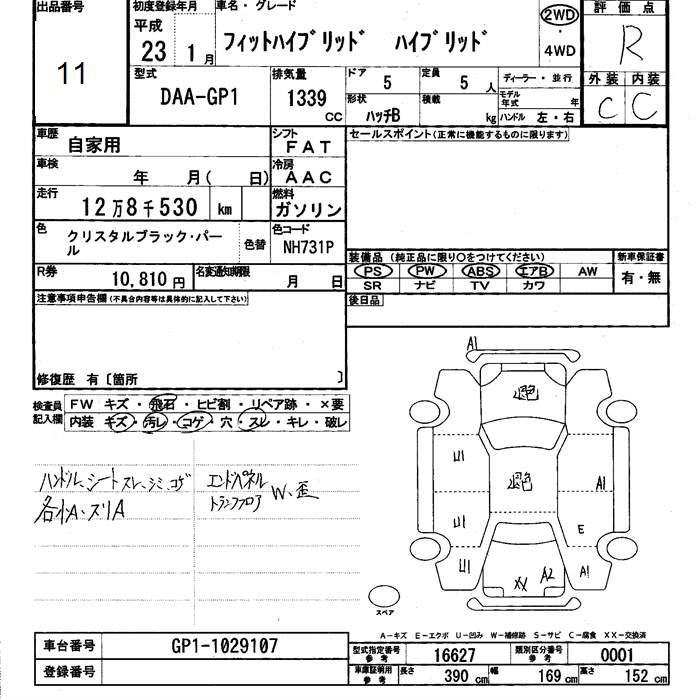 出品番号
11
初度登録年月
平成
23 1月
車名・グレード
フィットハイブリッド ハイブリッド
2WD
・
4WD
評価点
R
外装 内装
C C
型式
DAA-GP1
排気量
1339
CC
ドア
5
定員
5 人
形状
ハッチB
積載
kg
ディーラー・並行
モデル年式 年
ハンドル 左・右
車歴
自家用
シフト
FAT
セールスポイント(正常に機能するものに限ります)
車検
年 月( 日)
冷房
AAC
走行
12万8千530 km
燃料
ガソリン
色
クリスタルブラック・パール
色替
色コード
NH731P
装備品(純正品に限り○をつけてください)
PS PW ABS エアB AW
SR ナビ TV カワ
新車保証書
有・無
R券
10,810円
名変通知期限
月 日
後日品
注意事項申告欄(不具合内容等は具体的に記入して下さい)
修復歴 有〔箇所 〕
検査員記入欄
FW キズ・飛石・ヒビ割・リペア跡・×要
内装 キズ・汚レ・コゲ・穴・スレ・キレ・破レ
ハンドル、シートスレ、シミ、コゲ
各小A・スリA
エンドパネル
トランクフロア
W、歪
A1
U1
U1
U1
A1
E
A1
XX A2
スペア
A―キズ E―エクボ U―凹み W―補修跡 S―サビ C―腐食 XX―交換済
車台番号
GP1-1029107
登録番号
型式指定番号
参考
16627
類別区分番号
参考
0001
車庫証明用
参考
長さ
390 cm
幅
169 cm
高さ
152 cm